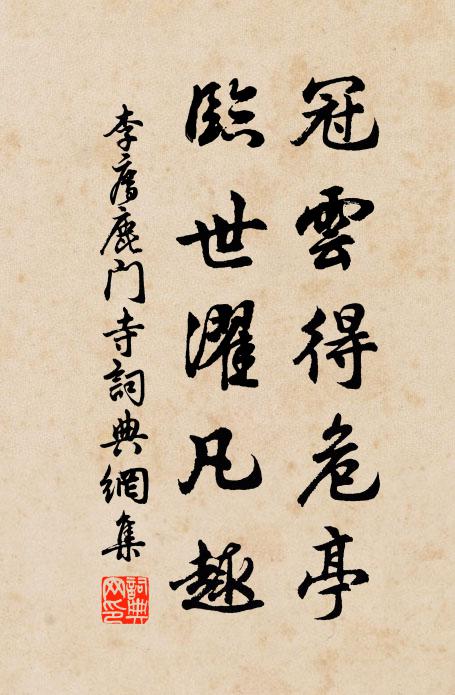 冠雲得危亭
臨世濯凡趣
李廌鹿門寺詞典網集
詞典網印